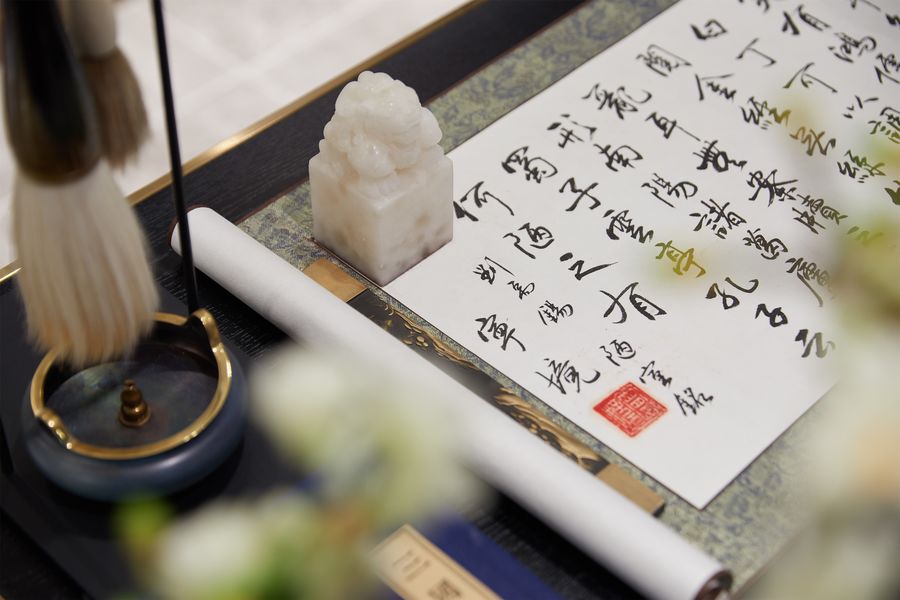 有鴻儒
白丁可以調
閱金經無絲
亂耳無案牘之
形南陽諸葛廬
蜀子雲亭孔子云
何陋之有
劉禹錫陋室銘
寧境